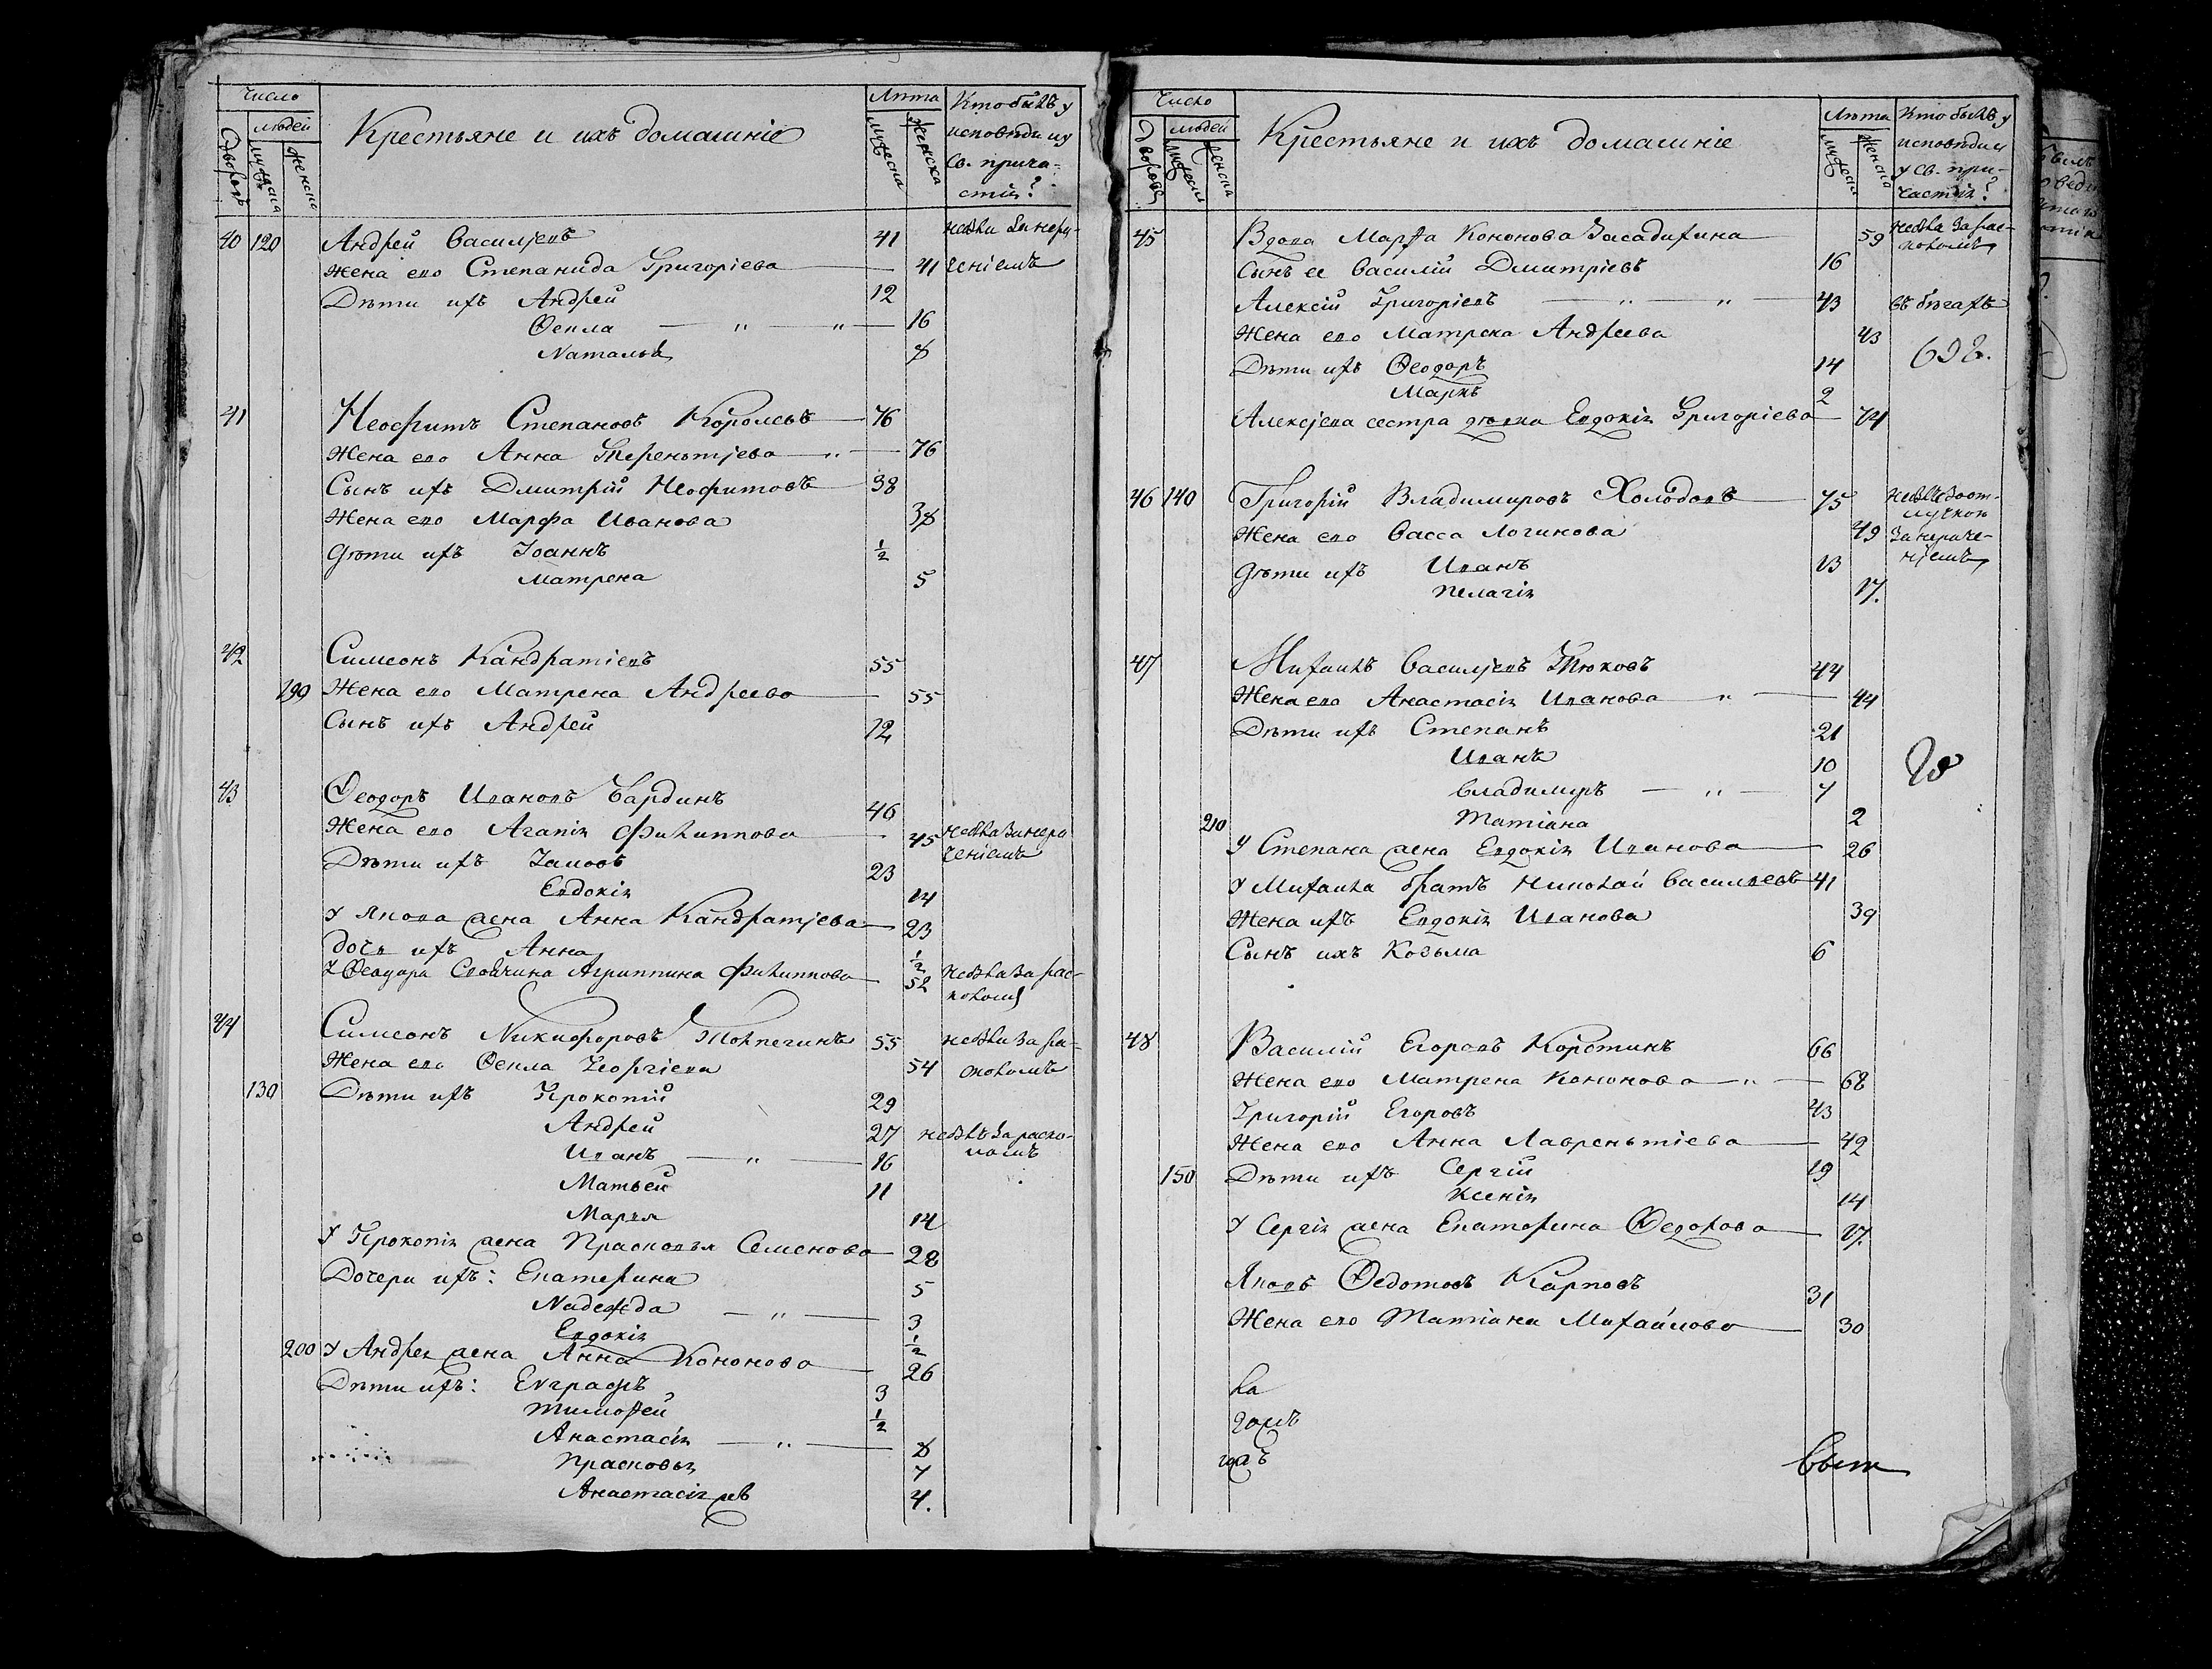 Число
Людей
Дворовъ
мужеска
женска
Крестьяне и ихъ домашніе
Лѣта
мужеска
женска
Кто былъ у
исповѣди и у
Св. прича-
стія?
40 120 Андрей Васильевъ 41 небыли за нера-
Жена его Степанида Григоріева 41 ченіемъ
Дѣти ихъ Андрей 12
Ѳекла 16
Наталья 8
41 Неофитъ Степановъ Королевъ 76
Жена его Анна Терентьева 76
Сынъ ихъ Дмитрій Неофитовъ 38
Жена его Марфа Иванова 38
Дѣти ихъ Іоаннъ ½
Матрена 5
42 Симеонъ Кандратіевъ 55
190 Жена его Матрена Андреева 55
Сынъ ихъ Андрей 12
43 Ѳеодоръ Ивановъ Бардинъ 46
Жена его Агапія Филиппова 45 небыла за нера
Дѣти ихъ Іаковъ 23 ченіемъ
Евдокія 14
У Якова жена Анна Кандратьева 23
Дочь ихъ Анна ½
У Ѳеодора Своячина Агриппина Филиппова 52 небыла за рас-
коломъ
44 Симеонъ Никифоровъ Толпегинъ 55 небыли за ра-
Жена его Ѳекла Георгіева 54 сколомъ
130 Дѣти ихъ Прокопій 29
Андрей 27 небылъ за раско-
Иванъ 16 ломъ
Матвей 11
Марья 14
У Прокопія жена Прасковья Семенова 28
Дочери ихъ: Екатерина 5
Надежда 3
Евдокія ½
200 У Андрея жена Анна Кононова 26
Дѣти ихъ: Евграфъ 3
Тимофей ½
Анастасія 8
Прасковья 7
Анастасія 4.
Число
Людей
Дворовъ
мужеска
женска
Крестьяне и ихъ домашніе
Лѣта
мужеска
женска
Кто былъ у
исповѣди и
у Св. при-
частія?
45 Вдова Марфа Кононова Засадихина 59 небыла за рас-
Сынъ ее Василій Дмитріевъ 16 коломъ
Алексій Григоріевъ 43 въ бѣгахъ
Жена его Матрена Андреева 43
Дѣти ихъ Ѳеодоръ 14
Маркъ 2
Алексѣева сестра девка Евдокія Григоріева 74
46 140 Григорій Владимировъ Холодовъ 75 небылъ за от-
лучкою
Жена его Васса Логинова 49 за нераче-
Дѣти ихъ Иванъ 13 ніемъ
Пелагія 17.
47 Михаилъ Васильевъ Тюковъ 44
Жена его Анастасія Иванова 44
Дѣти ихъ Степанъ 21
Иванъ 10
Владимиръ 7
210 Татіана 2
У Степана жена Евдокія Иванова 26
У Михаила братъ Николай Васильевъ 41
Жена ихъ Евдокія Иванова 39
Сынъ ихъ Козьма 6
48 Василій Егоровъ Коротинъ 66
Жена его Матрена Кононова 68
Григорій Егоровъ 43
Жена его Анна Лаврентіева 42
150 Дѣти ихъ Сергій 19
Ксенія 14
У Сергія жена Екатерина Ѳедорова 17.
Яковъ Ѳедотовъ Карповъ 31
Жена его Татіана Михайлова 30
ла